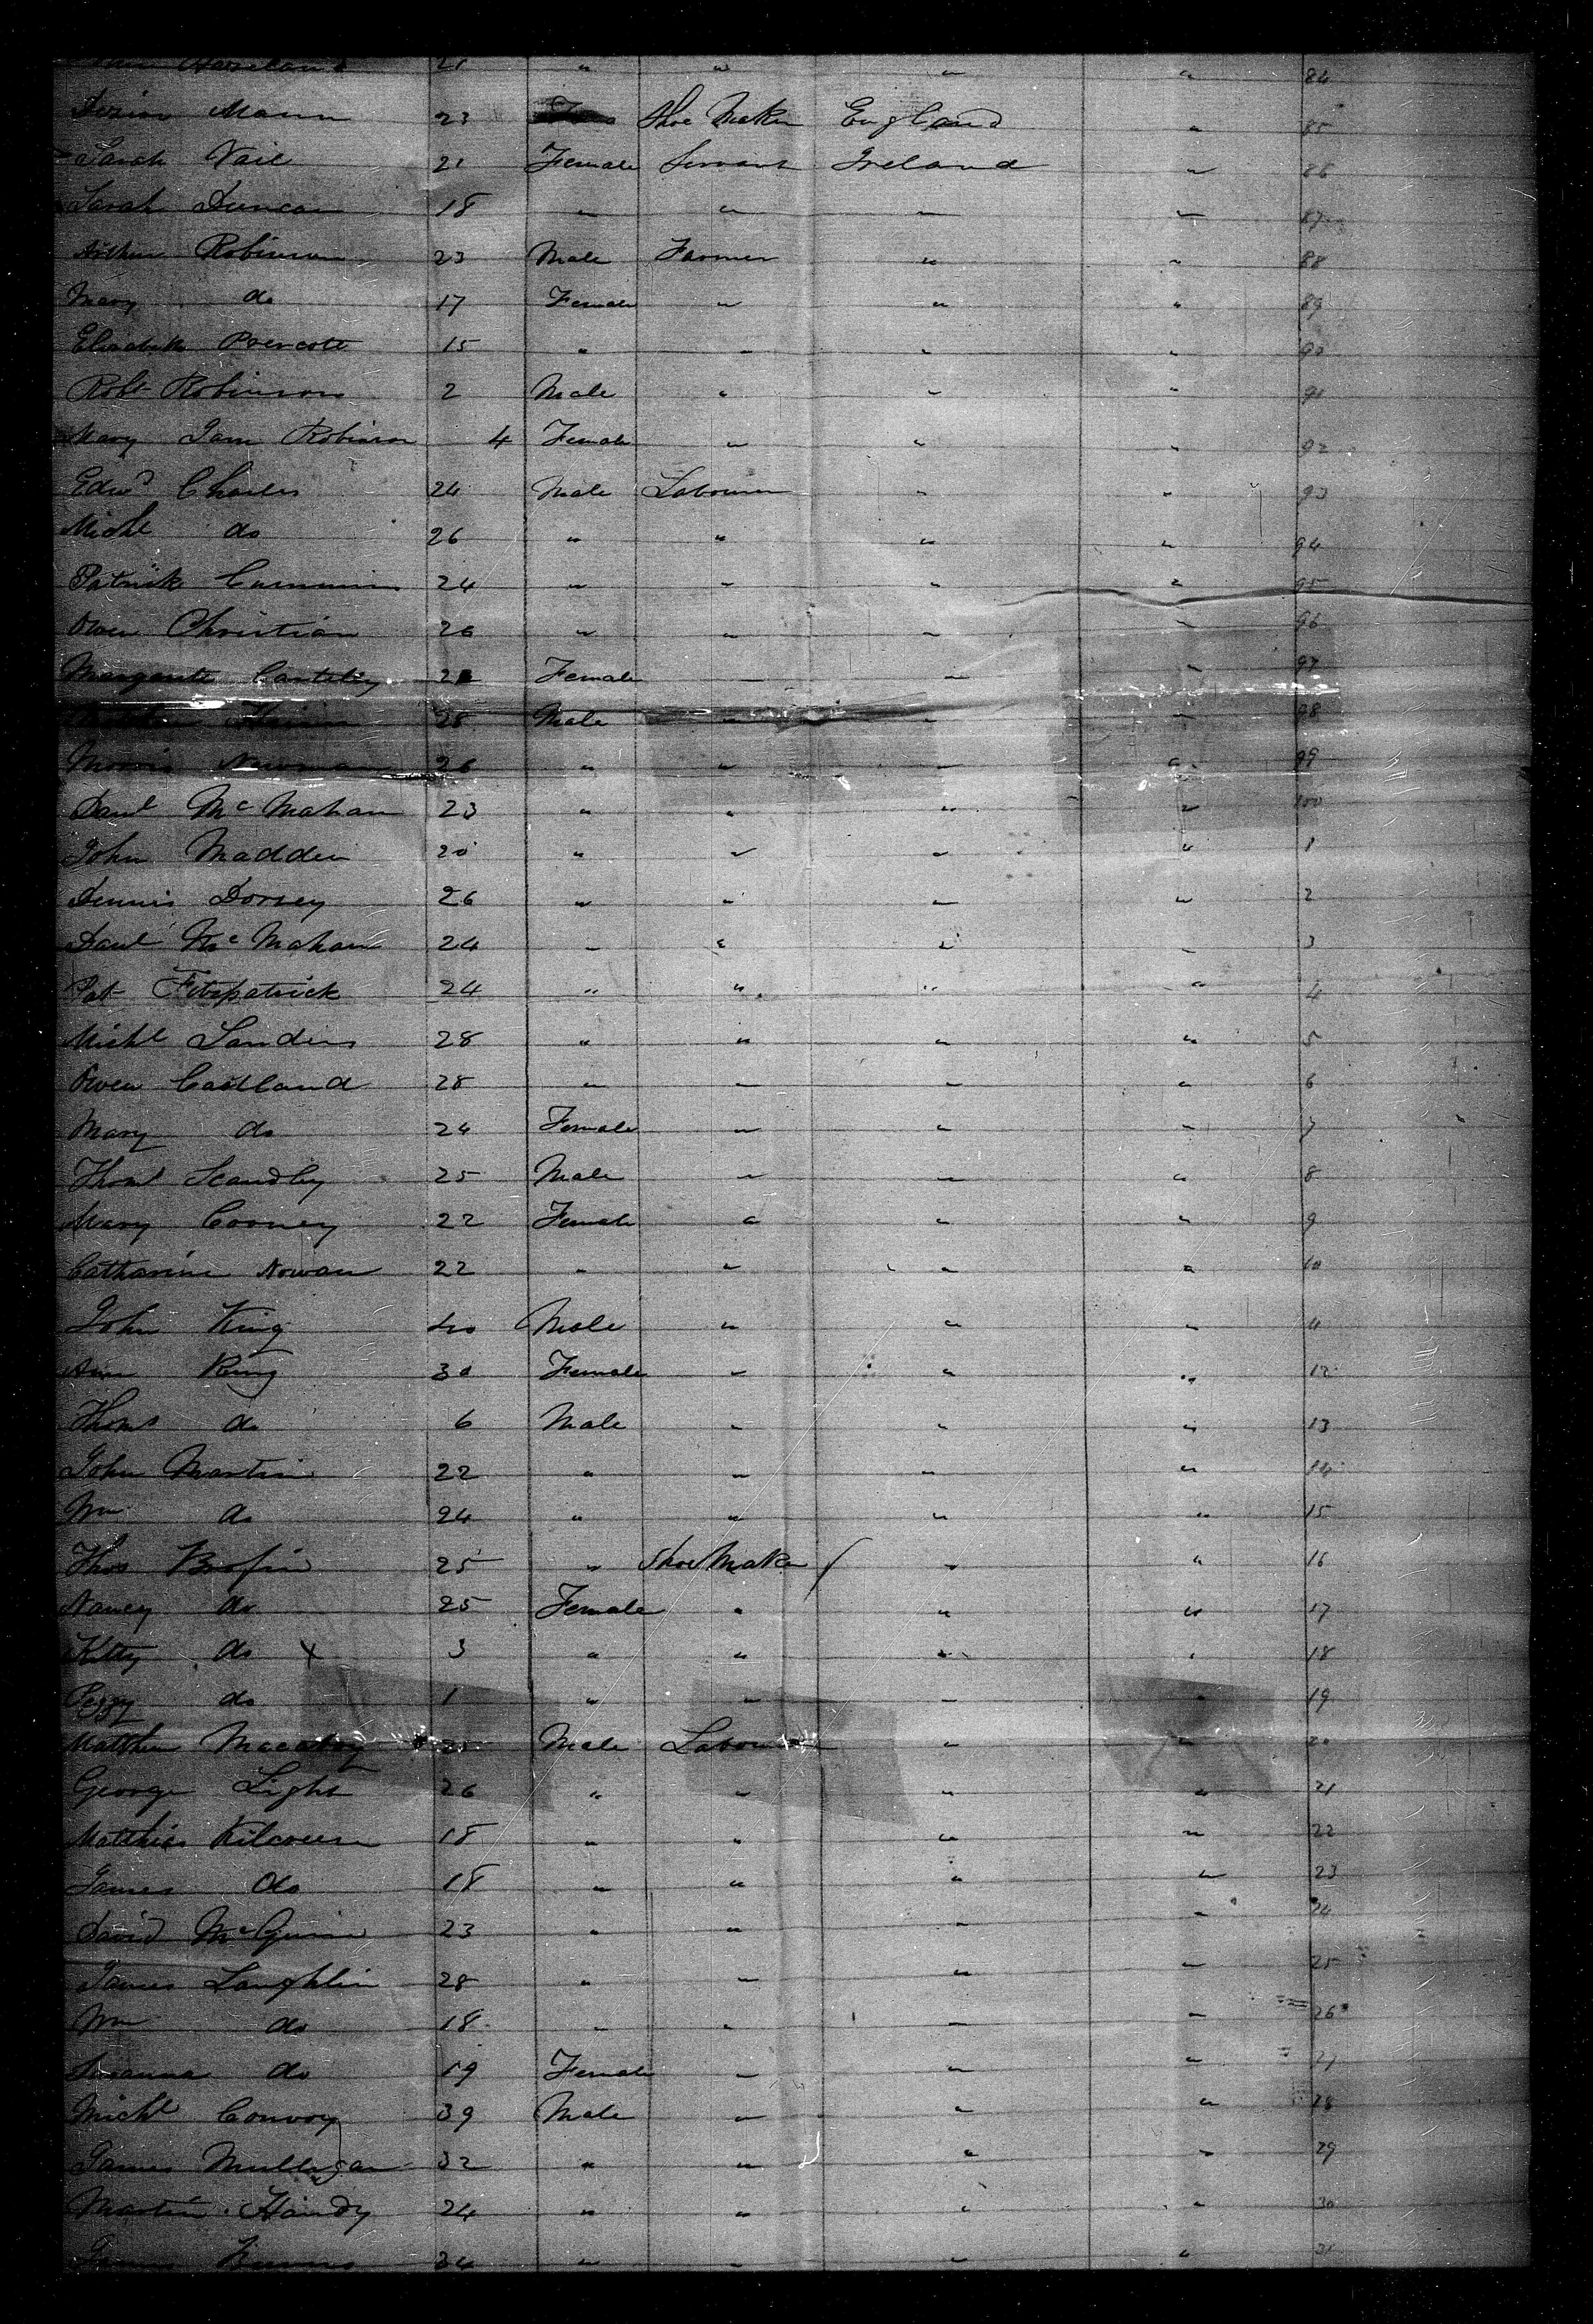 21 " " " " 84
Mann 23 Shoe Maker England " 85
Sarah Vail 21 Female Servant Ireland " 86
Sarah Duncan 18 " " " " 87
Arthur Robinson 23 Male Farmer " " 88
Mary do 17 Female " " " 89
Elizabeth Prescott 15 " " " " 90
Robt Robinson 2 Male " " " 91
Mary Jane Robinson 4 Female " " " 92
Edwd Charles 24 Male Labourer " " 93
Michl do 26 " " " " 94
Patrick Cummins 24 " " " " 95
Owen Christian 26 " " " " 96
Margarett Female " " " 97
28 Male " " " 98
Morris Newman 26 " " " " 99
Danl McMahan 23 " " " " 100
John Madden 20 " " " " 1
Dennis Dorsey 26 " " " " 2
Danl McMahan 24 " " " " 3
Pat Fitzpatrick 24 " " " " 4
Michl Sanders 28 " " " " 5
Owen Castland 28 " " " " 6
Mary do 24 Female " " " 7
Thoms Scandley 25 Male " " " 8
Mary Cooney 22 Female " " " 9
Catharine Nowan 22 " " " " 10
John King 40 Male " " " 11
Ann King 30 Female " " " 12
Thoms do 6 Male " " " 13
John Martin 22 " " " " 14
Wm do 24 " " " " 15
Thos 25 " Shoe Maker " " 16
Nancy do 25 Female " " " 17
Kitty do x 3 " " " " 18
Peggy do 1 " " " " 19
Matthew Male Labourer " " 20
George Light 26 " " " " 21
Matthias 18 " " " " 22
James do 18 " " " " 23
David McGuire 23 " " " " 24
James Laughlin 28 " " " " 25
Wm do 18 " " " " 26
Susanna do 19 Female " " " 27
Michl Conroy 39 Male " " " 28
James Mulligan 32 " " " " 29
Martin Handy 24 " " " " 30
James 34 " " " " 31